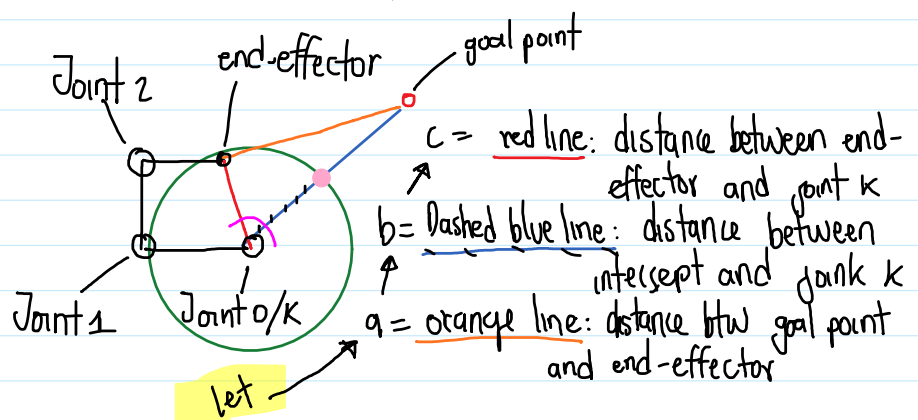 goal point
end-effector
Joint 2
c = red line: distance between end-
effector and joint k
b= Dashed blue line: distance between
intersept and joink k
Joint 1
Joint 0/K
a = orange line: distance btw goal point
and end-effector
let